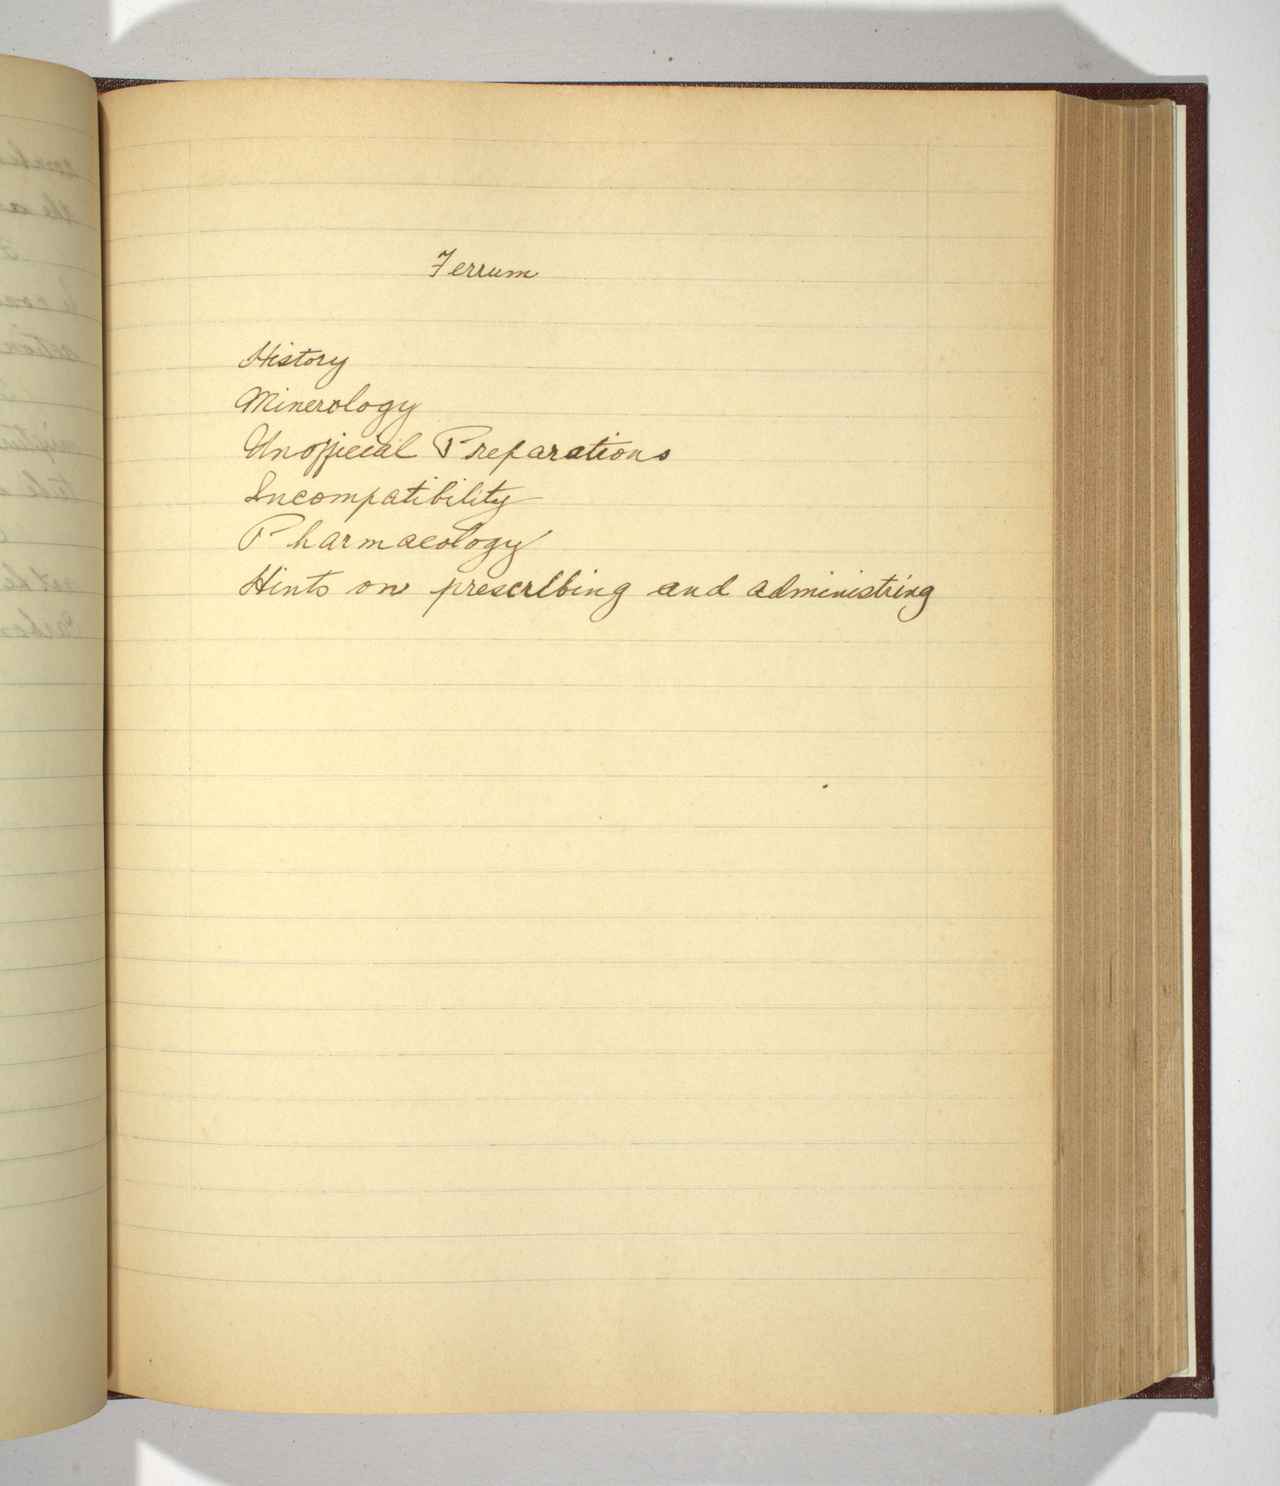 Ferrum
History
Minerology
Unofficial Preparations
Incompatibility
Pharmacology
Hints on prescribing and administring